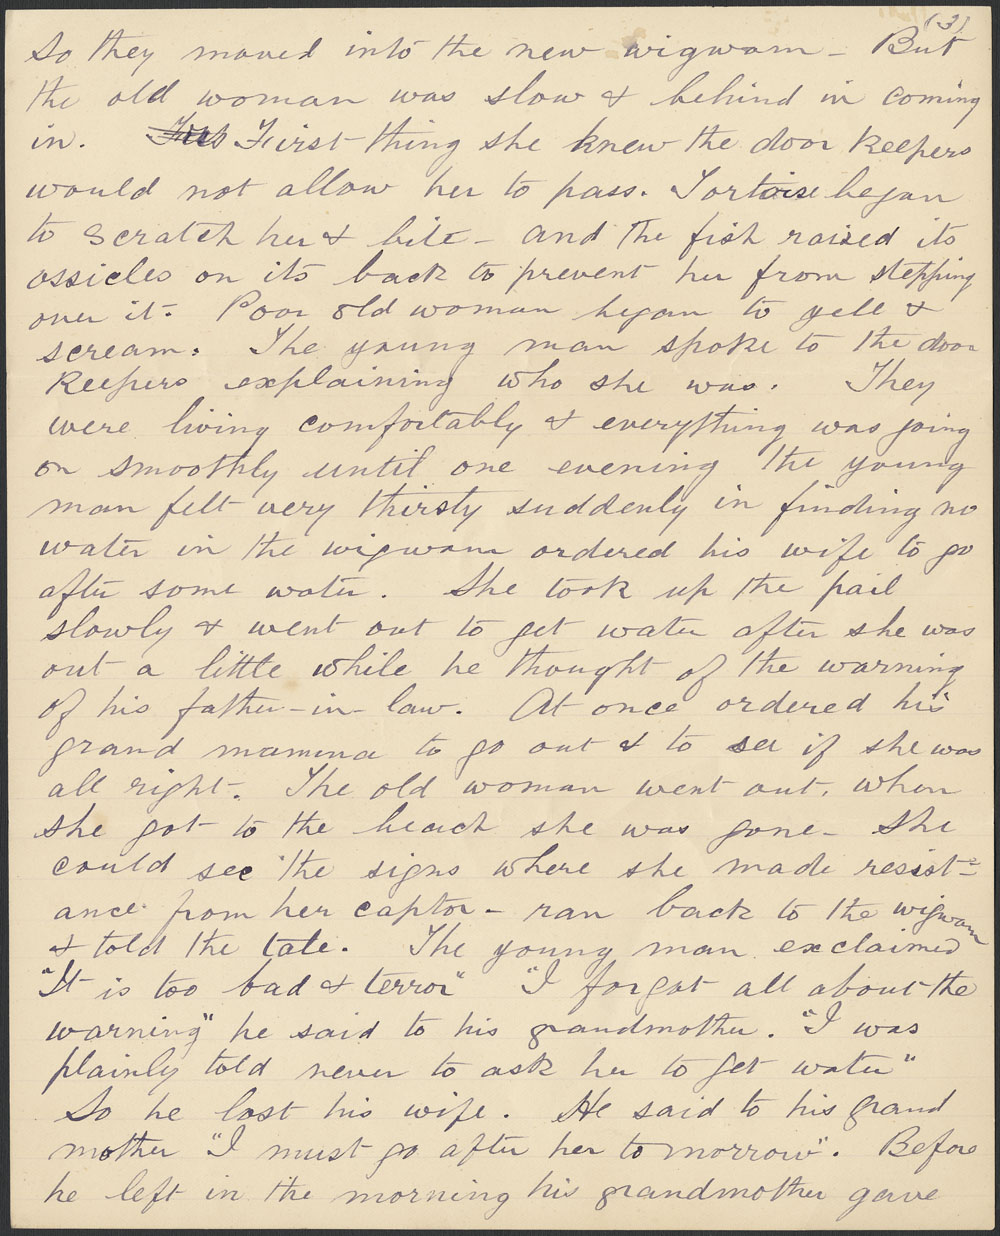 (3)
So they moved into the new wigwam - But
the old woman was slow & behind in coming
in. First thing she knew the door keepers
would not allow her to pass. Tortoise began
to scratch her & bite - and the fish raised its
ossicles on its back to prevent her from stepping
over it. Poor old woman began to yell &
scream. The young man spoke to the door
keepers explaining who she was. They
were living comfortably & everything was going
on smoothly until one evening the young
man felt very thirsty suddenly in finding no
water in the wigwam ordered his wife to go
after some water. She took up the pail
slowly & went out to get water after she was
out a little while he thought of the warning
of his father-in-law. At once ordered his
grand mamma to go out & to see if she was
all right. The old woman went out, when
she got to the beach she was gone - She
could see the signs where she made resist-
ance from her captor - ran back to the wigwam
& told the tale. The young man exclaimed
"It is too bad & terror" "I forgot all about the
warning" he said to his grandmother. "I was
plainly told never to ask her to get water"
So he lost his wife. He said to his grand
mother "I must go after her tomorrow". Before
he left in the morning his grandmother gave